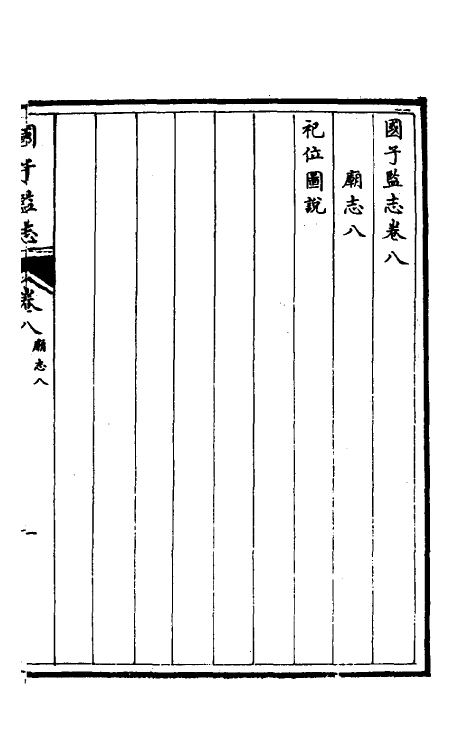 國子監志卷八
廟志八
祀位圖說
國子監志 卷八 廟志八 一